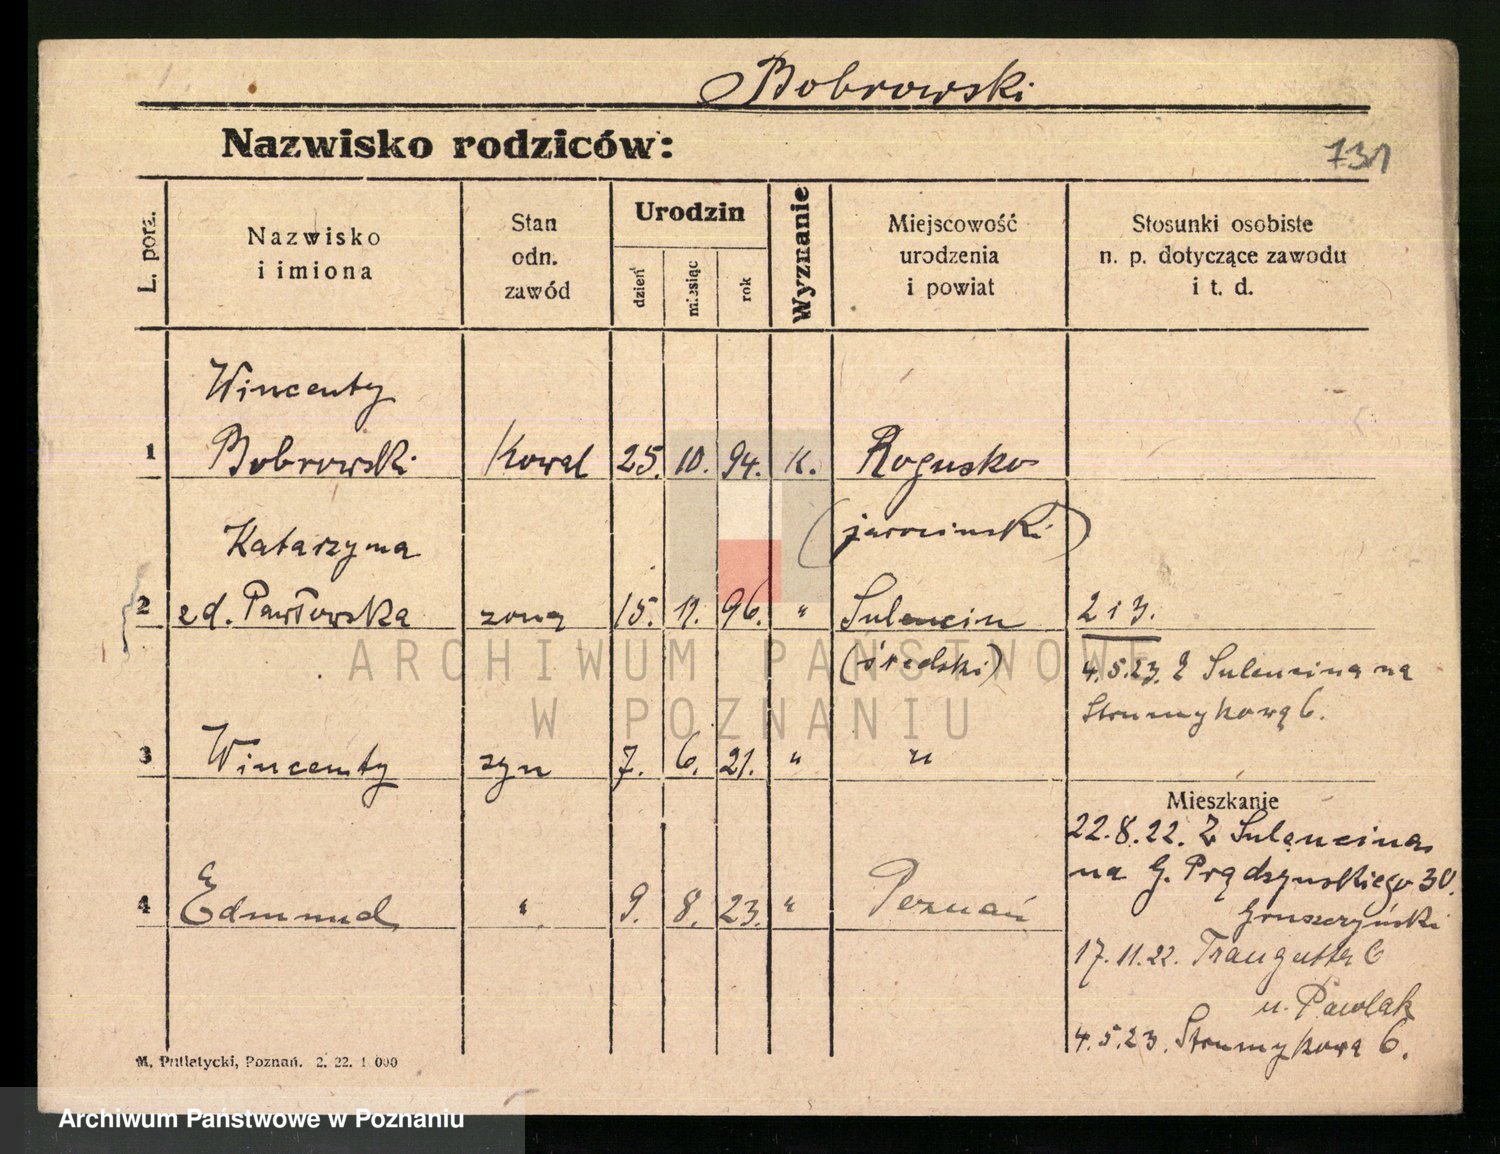 Bobrowski
Nazwisko rodziców:
731
L. porz.
Nazwisko
i imiona
Stan
odn.
zawód
Urodzin
dzień
miesiąc
rok
Wyznanie
Miejscowość
urodzenia
i powiat
Stosunki osobiste
n. p. dotyczące zawodu
i t. d.
Wincenty
1 Bobrowski Kowal 25. 10. 94. K. Rogusko
(jarocinski)
Katarzyna
2 zd. Pawłowska zona 15. 11. 96. " Sulencin 2 i 3.
(średski) 4.5.23. Z Sulencina na
Strumykową 6.
3 Wincenty syn 7. 6. 21. " "
Mieszkanie
22.8.22. Z Sulencina
na G. Prądzynskiego 30.
4 Edmund " 9. 8. 23. " Poznań
Gruszczyński
17.11.22. Traugutta 6
u. Pawlak
4.5.23. Strumykowa 6.
M. Putiatycki, Poznań. 2. 22. 1 000
ARCHIWUM PAŃSTWOWE
W POZNANIU
Archiwum Państwowe w Poznaniu